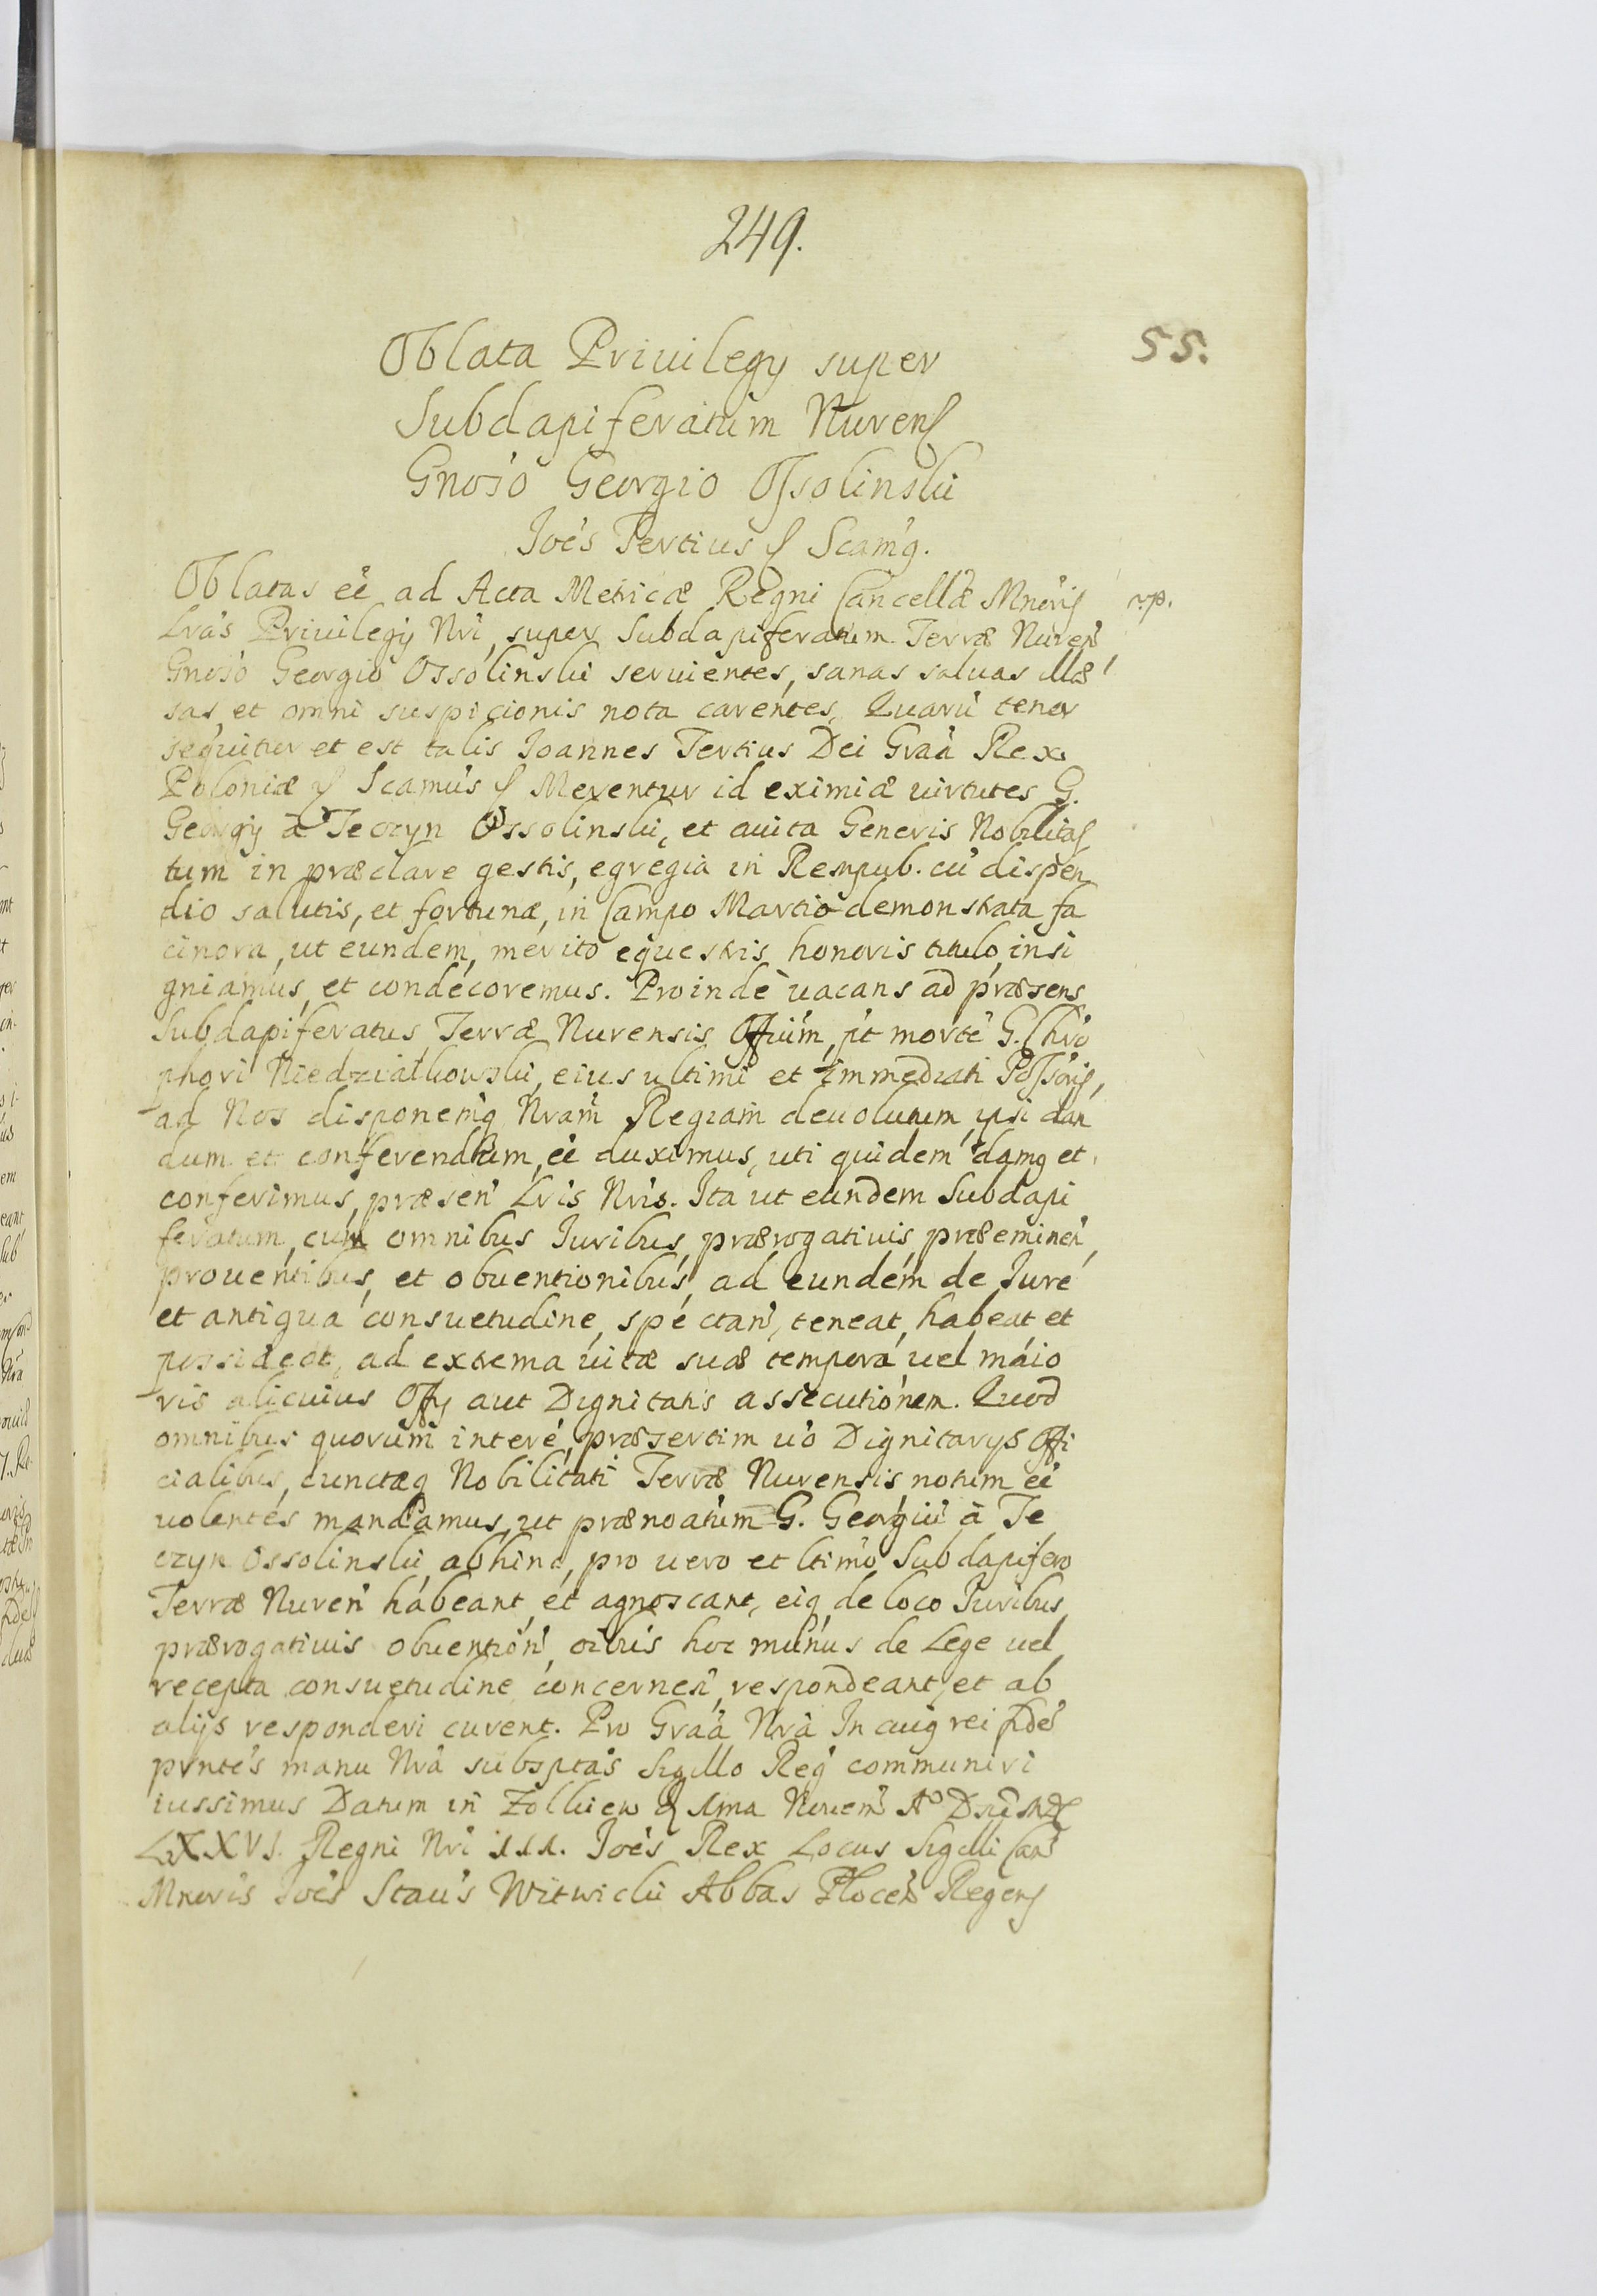 249.
55.
Oblata Priuilegÿ super
Subdapiferatum Nurenſ
Gnoso Georgio Oſsolinski
Joes Tertius ſ Scamg.
Oblatas ee ad Acta Metricæ Regni Cancellæ Mnoris
Lras Priuilegÿ Nri, super Subdapiferatum Terræ Nuren
Gnoso Georgio Ossolinski seruientes, sanas saluas illæ
sas, et omni suspicionis nota carentes, Quaru tenor
sequitur et est talis Joannes Tertius Dei Graa Rex
Poloniæ ſ Scamus ſ Merentur id eximiæ uirtutes G.
Georgÿ à Teczyn Ossolinski, et auita Generis Nobilitas
tum in præclare gestis, egregia in Rempub. cu dispen
dio salutis, et fortunæ, in Campo Martio demonstrata fa
cinora, ut eundem, merito equestris honoris titulo insi
gniamus, et condecoremus. Proindè uacans ad præsens
Subdapiferatus Terræ Nurensis Offium, pt morte G. Chro
phori Niedzialkowski, eius ultimi et immediati Poſsoris,
ad Nos disponemq Nram Regiam deuolutum, ipsi dan
dum et conferendum ee duximus, uti quidem damq et
conferimus, præsen Lris Nris. Ita ut eundem Subdapi
feratum, cum omnibus Juribus, prærogatiuis, præeminen,
prouentibus, et obuentionibus, ad eundem de Jure
et antiqua consuetudine, spectan, teneat, habeat et
possideat, ad extrema uitæ suæ tempora uel maio
ris alicuius Offÿ aut Dignitatis assecutionem. Quod
omnibus quorum intere, præsertim uo Dignitarÿs Offi
cialibus, cunctæq Nobilitati Terræ Nurensis notum ee
uolentes mandamus, ut prænoatum G. Georgiu à Te
czyn Ossolinski, abhinc, pro uero et ltimo Subdapifero
Terræ Nuren habeant et agnoscant, eiq de loco Juribus
prærogatiuis obuention, oibus hoc munus de Lege uel
recepta consuetudine concernen, respondeant, et ab
alÿs responderi curent. Pro Graa Nra In cuiq rei fide
pntes manu Nra subsptas Sigillo Reg communiri
iussimus Datum in Zolkiew d 1ma Nouem Ao Dni MDC
LXXVI. Regni Nri III. Joes Rex Locus Sigilli Can
Mnoris Joes Staus Witwicki Abbas Plocen Regens